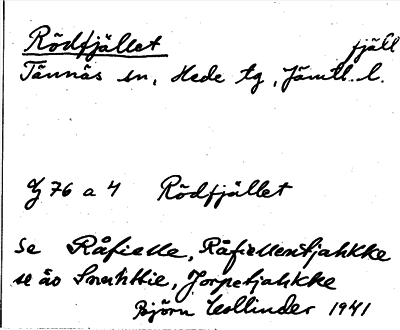 Rödfjället fjäll
Tännäs sn, Hede tg, Jämtl. l.
G 76 a 4 Rödfjället
Se Råfielle, Råfiellentjahkke
se äv Snuhttie, Jorpetjahkke
Björn Collinder 1941